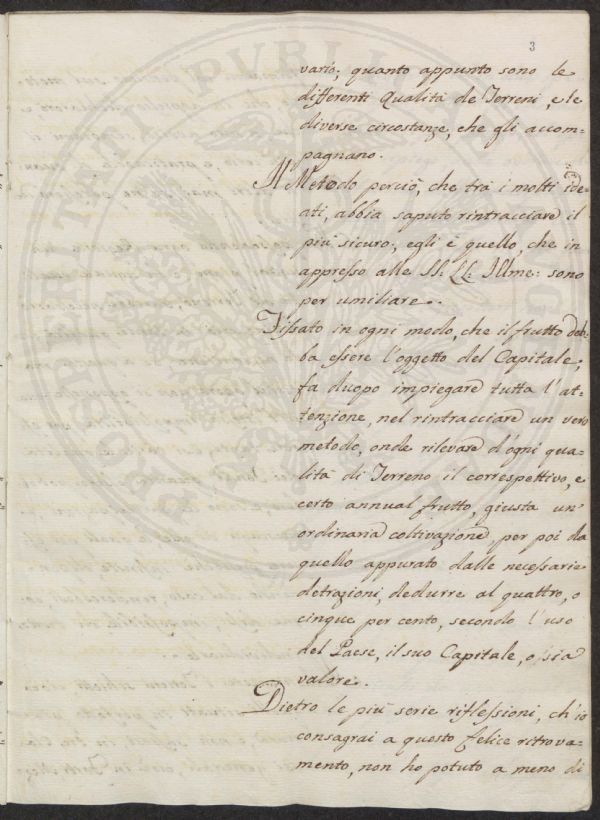 3
vario; quanto appunto sono le
differenti Qualità de Terreni, e le
diverse circostanze, che gli accom=
pagnano.
Il Metodo perciò, che trà i molti ide=
ati, abbia saputo rintracciare il
più sicuro; egli è quello, che in
appresso alle SS: LL: Illme: sono
per umiliare.
Fissato in ogni modo, che il frutto deb=
ba essere l'oggetto del Capitale;
fa duopo impiegare tutta l'at=
tenzione, nel rintracciare un vero
metodo, onde rilevare d'ogni qua=
lità di Terreno il correspettivo, e
certo annual frutto, giusta un'
ordinaria coltivazione, per poi da
quello appurato dalle necessarie
detrazioni, dedurre al quattro, o
cinque per cento, secondo l'uso
del Paese, il suo Capitale, o sia
valore.
Dietro le più serie riflessioni, ch'io
consagrai a questo felice ritrova=
mento, non ho potuto a meno di
PROSPERITATI PVBLICAE